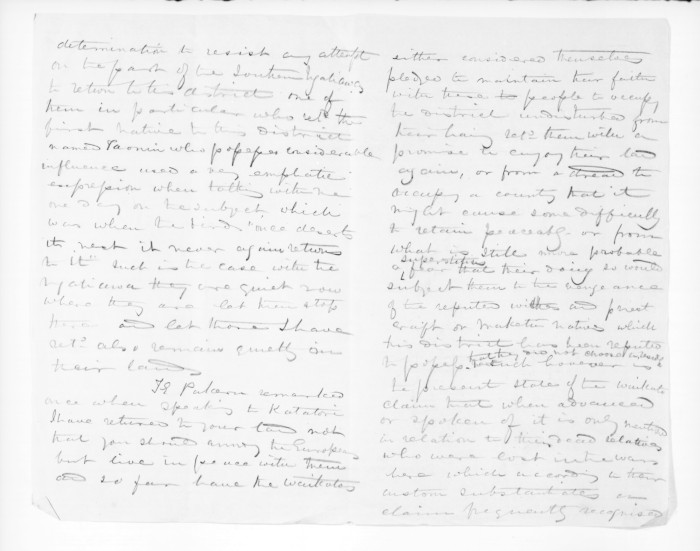 determination to resist any attempt
on the part of the Southern Ngatiawas
to return to this district one of
them in particular who retd the
first native to this district
named Taonui who possesses considerable
influence used a very emphatic
expression when talking with me
one day on the subject which
was when the bird once deserts
its nest it never again returns
to it such is the case with the
Ngatiawa they are quiet now
where they are let them stop
there and let those I have
retd also remain quietly on
their lands
remarked
once when speaking to Katatore
I have returned to your land not
that you should annoy the Europeans
but live in peace with them
and so far have the Waikatos
either considered themselves
pledged to maintain their faith
with these people to occupy
the district undisturbed from
their having retd them with a
promise to enjoy their land
again, or from a dread to
occupy a country that it
might cause some difficulty
to retain peaceably or from
what is still more probable
a superstitious fear that their doing so would
subject them to the vengeance
of the reputed witch and priest
craft or Makutu natives which
this district has been reputed
to possess. which however is
the present state of the Waikato
claim that when advanced
or spoken of it is only
in relation to their dead relatives
who were lost in the wars
here which according to their
custom substantiates a
claim frequently recognised